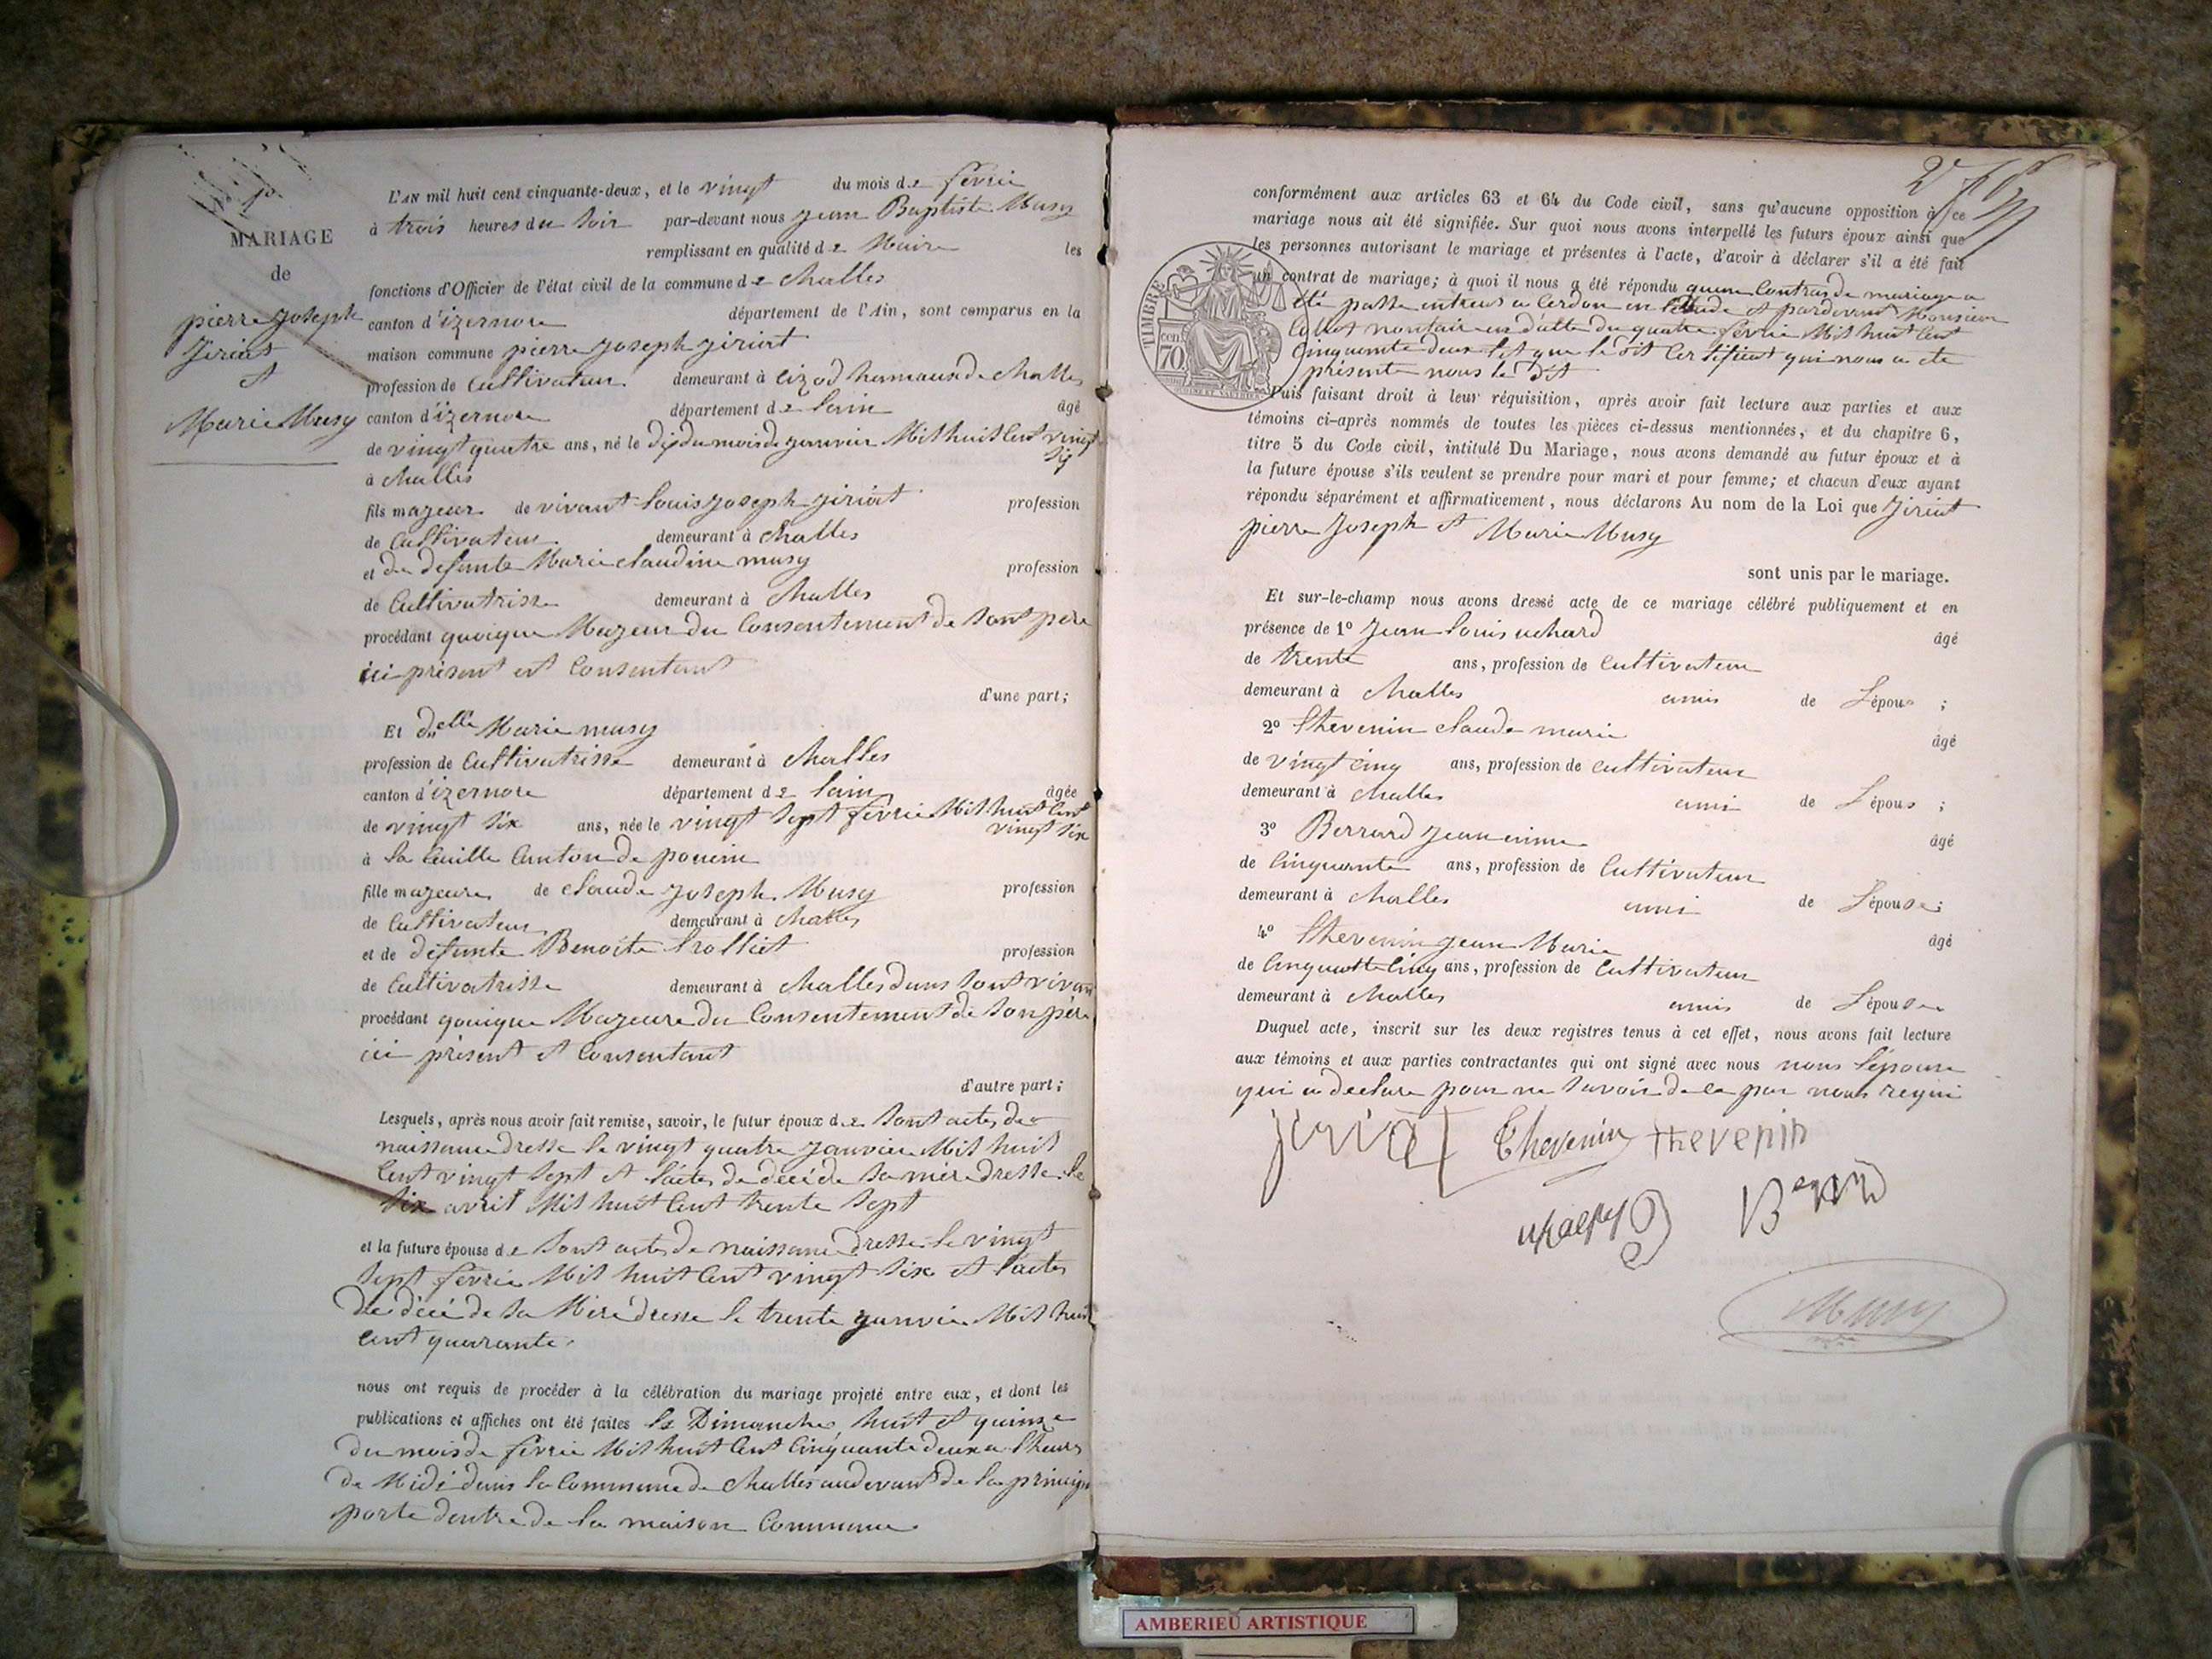 MARIAGE
de
pierre Joseph
Jiriat
et
Marie Musy
L'AN mil huit cent cinquante-deux, et le vingt du mois de fevrie
à trois heures du soir par-devant nous jean Baptiste Musy
remplissant en qualité de Maire les
fonctions d'Officier de l'état civil de la commune de challes
canton d'izernore département de l'Ain, sont comparus en la
maison commune pierre joseph jiriat
profession de Cultivateur demeurant à cizod hamaux de challes
canton d'izernore département de lain âgé
de vingt quatre ans, né le dix du mois de janvier Mil huit Cent vingt
six
à challes
fils majeur de vivant louis joseph jiriat profession
de Cultivateur demeurant à challes
et de defunte Marie claudine musy profession
de Cultivatrisse demeurant à challes
procédant quoique Majeur du Consentement de sont père
ici présent et Consentant
d'une part;
Et delle Marie musy
profession de Cultivatrisse demeurant à challes
canton d'izernore département de lain âgée
de vingt six ans, née le vingt sept fevrie Mil huit Cent
vingt six
à la Cuille Canton de poncin
fille majeure de claude joseph Musy profession
de Cultivateur demeurant à challes
et de défunte Benoite profession
de Cultivatrisse demeurant à challes dans sont vivan
procédant quoique Majeure du Consentement de son père
ici présent et Consentant
d'autre part;
Lesquels, après nous avoir fait remise, savoir, le futur époux de sont actes de
naissance dresse le vingt quatre janvier Mil huit
Cent vingt sept et l'actes de décé de sa mère dresse le
six avril Mil huit Cent trente sept
et la future épouse de sont actes de naissance dresse le vingt
sept fevrie Mil huit Cent vingt six et l'actes
de décé de sa Mere dresse le trente janvie Mil huit
cent quarante
nous ont requis de procéder à la célébration du mariage projeté entre eux, et dont les
publications et affiches ont été faites les Dimanches huit et quinze
du mois de fevrie Mil huit Cent Cinquante deux a l'heure
de Midi dans la Commune de challes au devant de la princip
porte dentre de la maison Commune
conformément aux articles 63 et 64 du Code civil, sans qu'aucune opposition à ce
mariage nous ait été signifiée. Sur quoi nous avons interpellé les futurs époux ainsi que
les personnes autorisant le mariage et présentes à l'acte, d'avoir à déclarer s'il a été fait
un contrat de mariage; à quoi il nous a été répondu quun Contras de mariage a
été passe entreus a Cerdon en létude et pardevant Monsieur
notair en datte du quatre fevrie Mil huit Cent
Cinquante deux que le dit Certificat qui nous a éte
présente nous le dit
TIMBRE
cen 70
Puis faisant droit à leur réquisition, après avoir fait lecture aux parties et aux
témoins ci-après nommés de toutes les pièces ci-dessus mentionnées, et du chapitre 6,
titre 5 du Code civil, intitulé Du Mariage, nous avons demandé au futur époux et à
la future épouse s'ils veulent se prendre pour mari et pour femme; et chacun d'eux ayant
répondu séparément et affirmativement, nous déclarons Au nom de la Loi que Jiriat
pierre Joseph et Marie Musy
sont unis par le mariage.
Et sur-le-champ nous avons dressé acte de ce mariage célébré publiquement et en
présence de 1º Jean louis uchard âgé
de trente ans, profession de Cultivateur
demeurant à challes amis de L'époux ;
2º thevenin claude marie âgé
de vingt cinq ans, profession de cultivateur
demeurant à challes ami de L'époux ;
3º Berrard jean âgé
de Cinquante ans, profession de Cultivateur
demeurant à challes ami de L'épouse;
4º thevenin jean Marie âgé
de Cinquante Cinq ans, profession de Cultivateur
demeurant à challes amis de L'épouse
Duquel acte, inscrit sur les deux registres tenus à cet effet, nous avons fait lecture
aux témoins et aux parties contractantes qui ont signé avec nous nous l'épouse
qui a declare pour ne savoir de ce par nous requi
jiriat Thevenin thevenin
Musy
AMBERIEU ARTISTIQUE